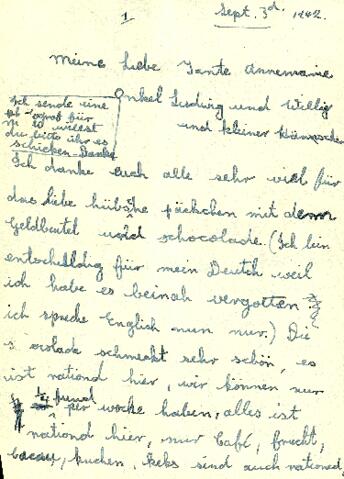 1
Sept. 3d. 1942.
Meine Liebe Tante Annemarie
Onkel Ludwig und Willy
und kleiner
Ich sende eine
für
willst
du bitte ihr es
schicken - Danke
Ich danke euch alle sehr viel für
das liebe hübsche päckchen mit dem
Geldbeutel und schocolade. (Ich bin
entschuldig für mein Deutch weil
ich habe es beinah vergotten
ich spreche English nun nur.) Die
schmeckt sehr schön, es
ist rationd hier, wir können nur
1/4 pund per woche haben, alles ist
rationd hier, nur Café, frucht,
cacau, kuchen, keks sind auch rationed,